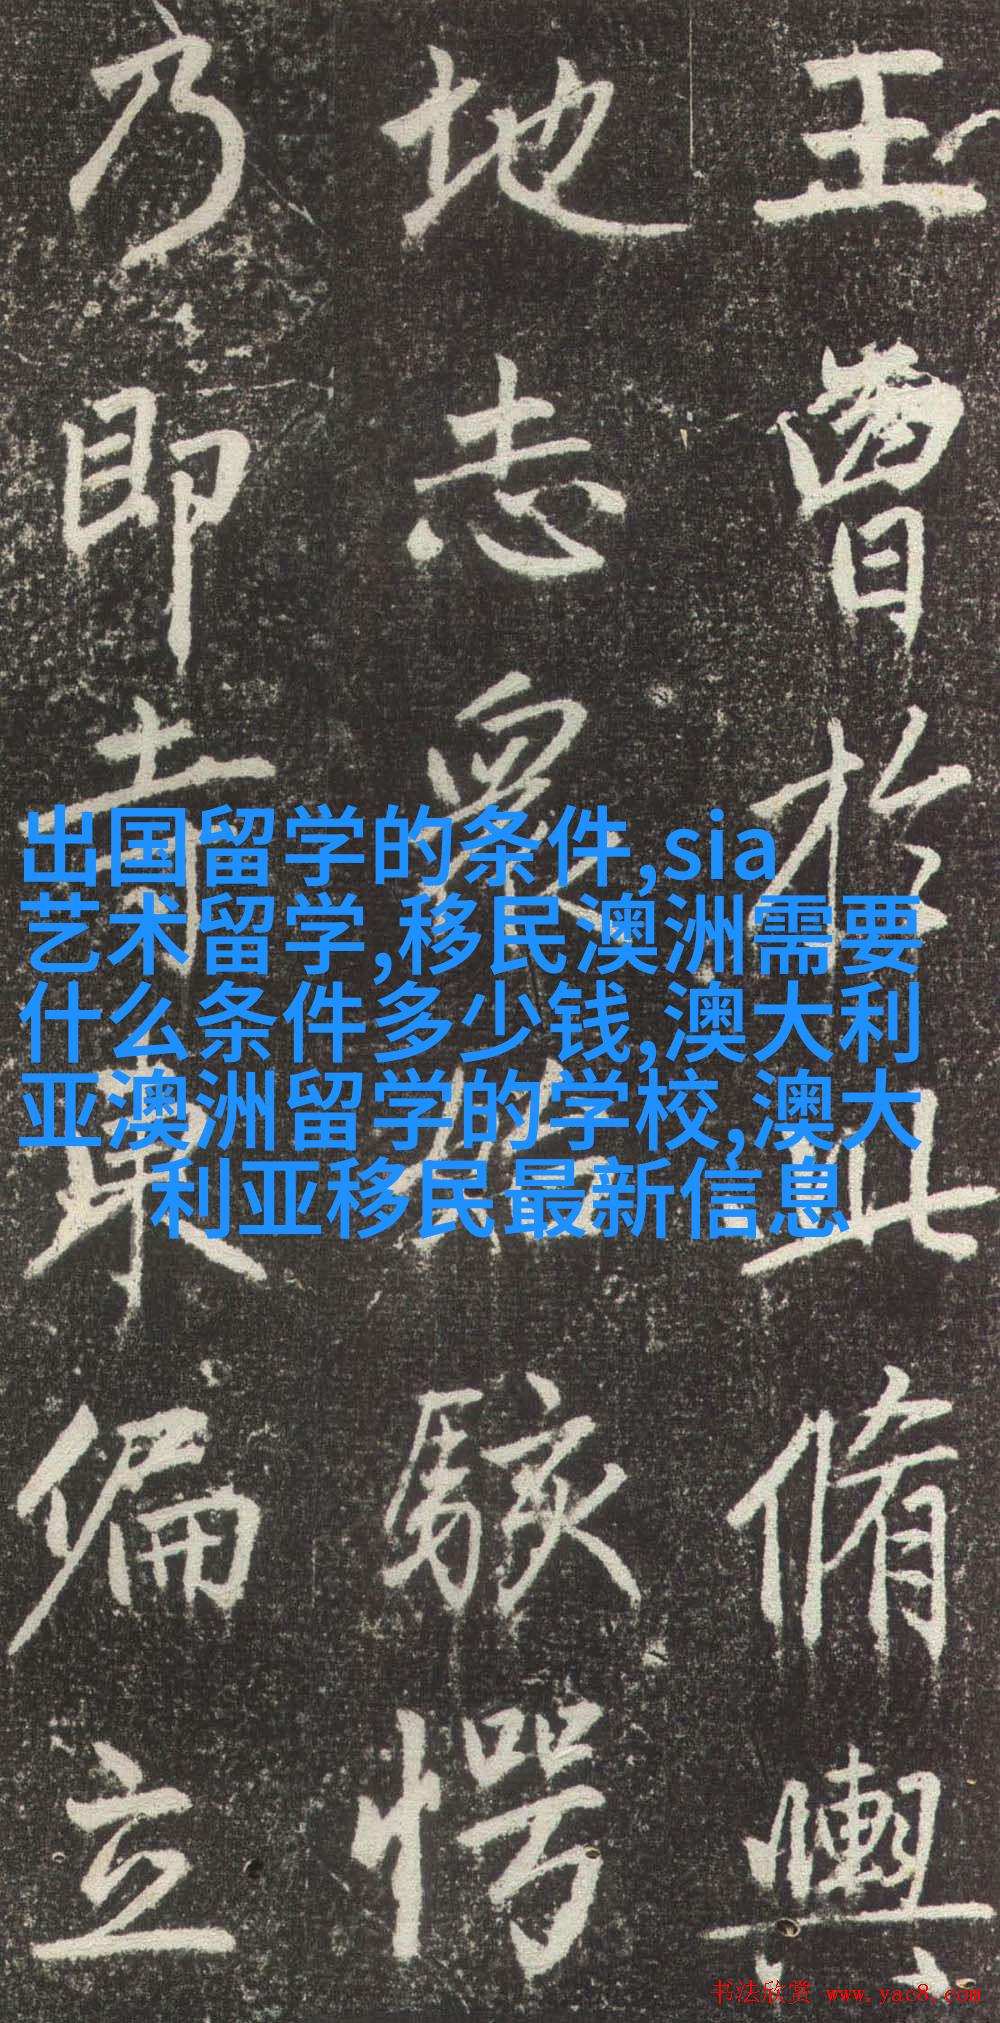 王曾於此脩輿
地志眾駭愕
乃即寺東偏立
出国留学的条件,sia
艺术留学,移民澳洲需要
什么条件多少钱,澳大利
亚澳洲留学的学校,澳大
利亚移民最新信息
书法欣赏 www.yac8.com